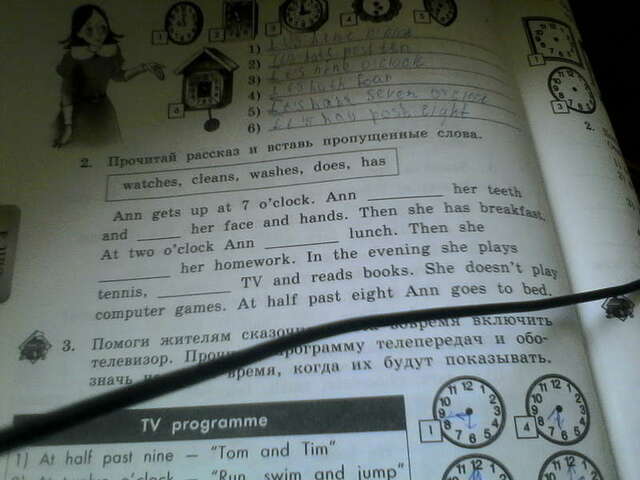 1) It's nine o'clock
2) half past ten
3) It's nine o'clock
4) half four
5) It's half seven o'clock
6) It's half past eight
2. Прочитай рассказ и вставь пропущенные слова.
watches, cleans, washes, does, has
Ann gets up at 7 o'clock. Ann her teeth
and her face and hands. Then she has breakfast.
At two o'clock Ann lunch. Then she
her homework. In the evening she plays
tennis, TV and reads books. She doesn't play
computer games. At half past eight Ann goes to bed.
3. Помоги жителям вовремя включить
телевизор. программу телепередач и обо-
значь время, когда их будут показывать.
TV programme
1) At half past nine — "Tom and Tim"
"Run, swim and jump"